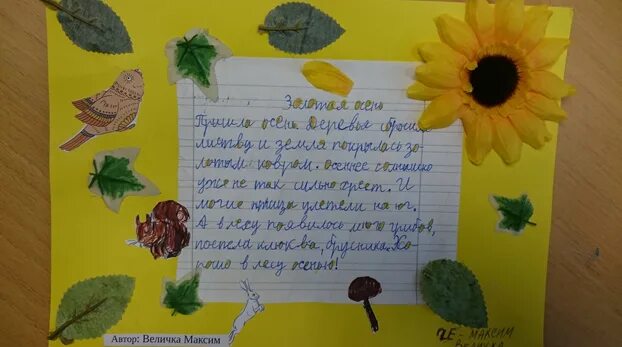 Золотая осень
Пришла осень. Деревья сбросили
листву и земля покрылась зо-
лотым ковром. осеннее солнышко
уже не так сильно греет. И
многие птицы улетели на юг.
А в лесу появилось много грибов,
поспела клюква, брусника. Хо
рошо в лесу осенью!
Автор: Величка Максим
2Е - МАКСИМ
ВЕЛИЧКА